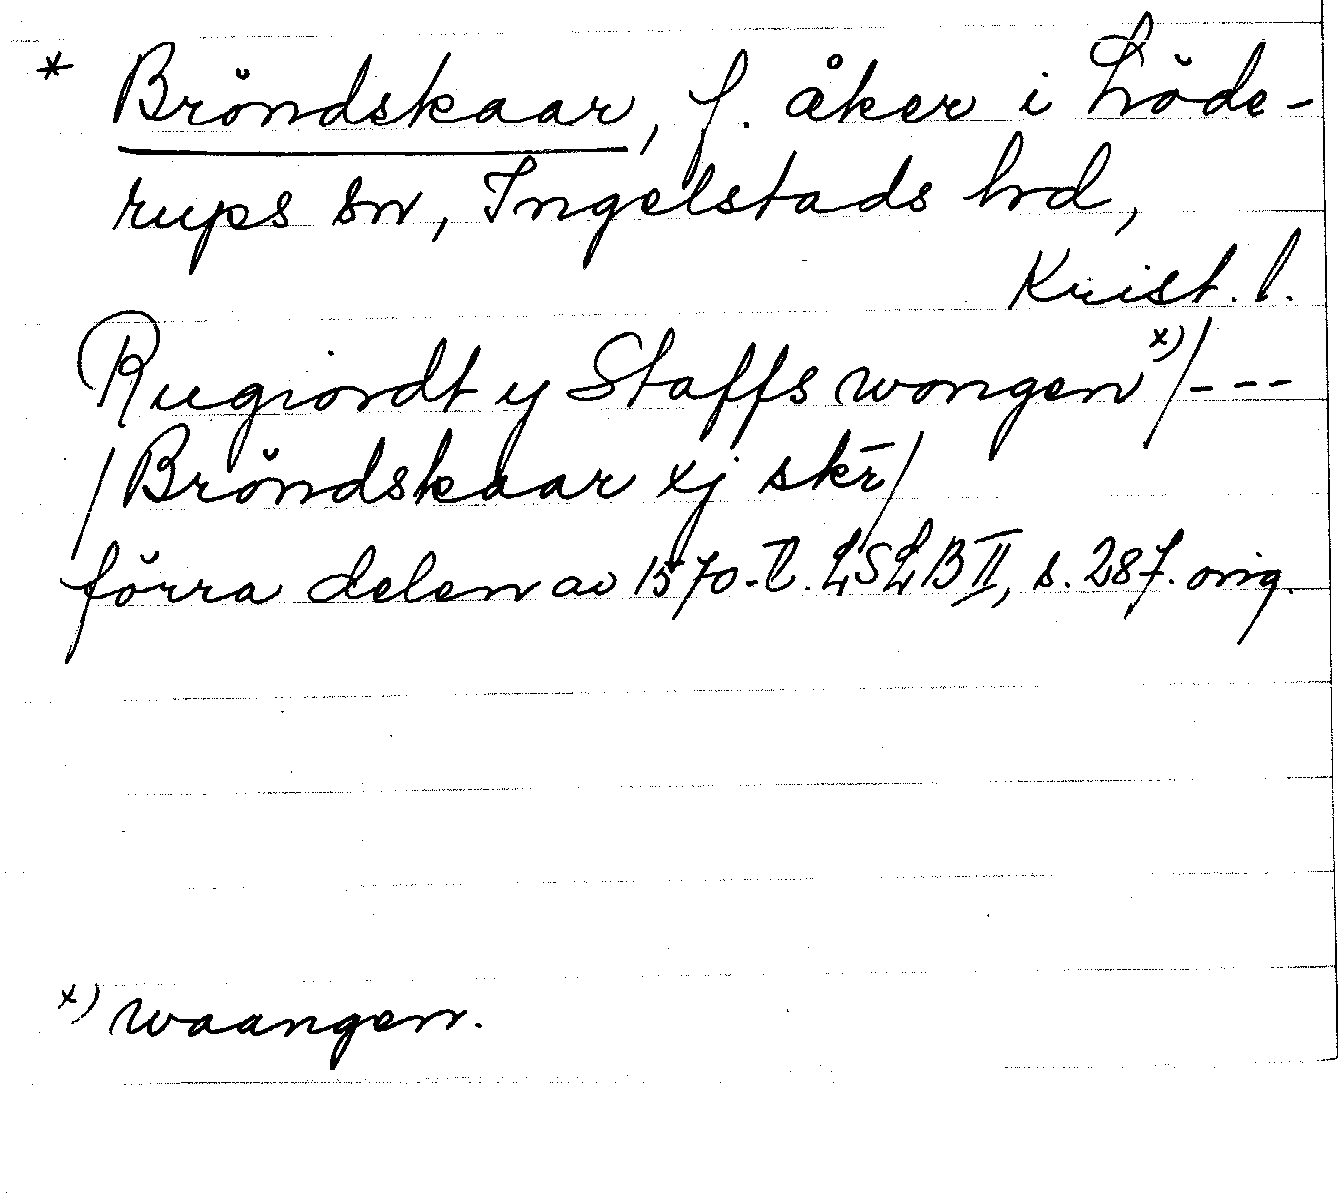 * Bröndskaar, f. åker i Löde-
rups sn, Ingelstads hd,
Krist. l.
Rugiordt y Staffs wongen x)/---
/Bröndskaar xj skr̄/
förra delen av 1570-t. LSLB II, s. 287. orig.
x) waangen.